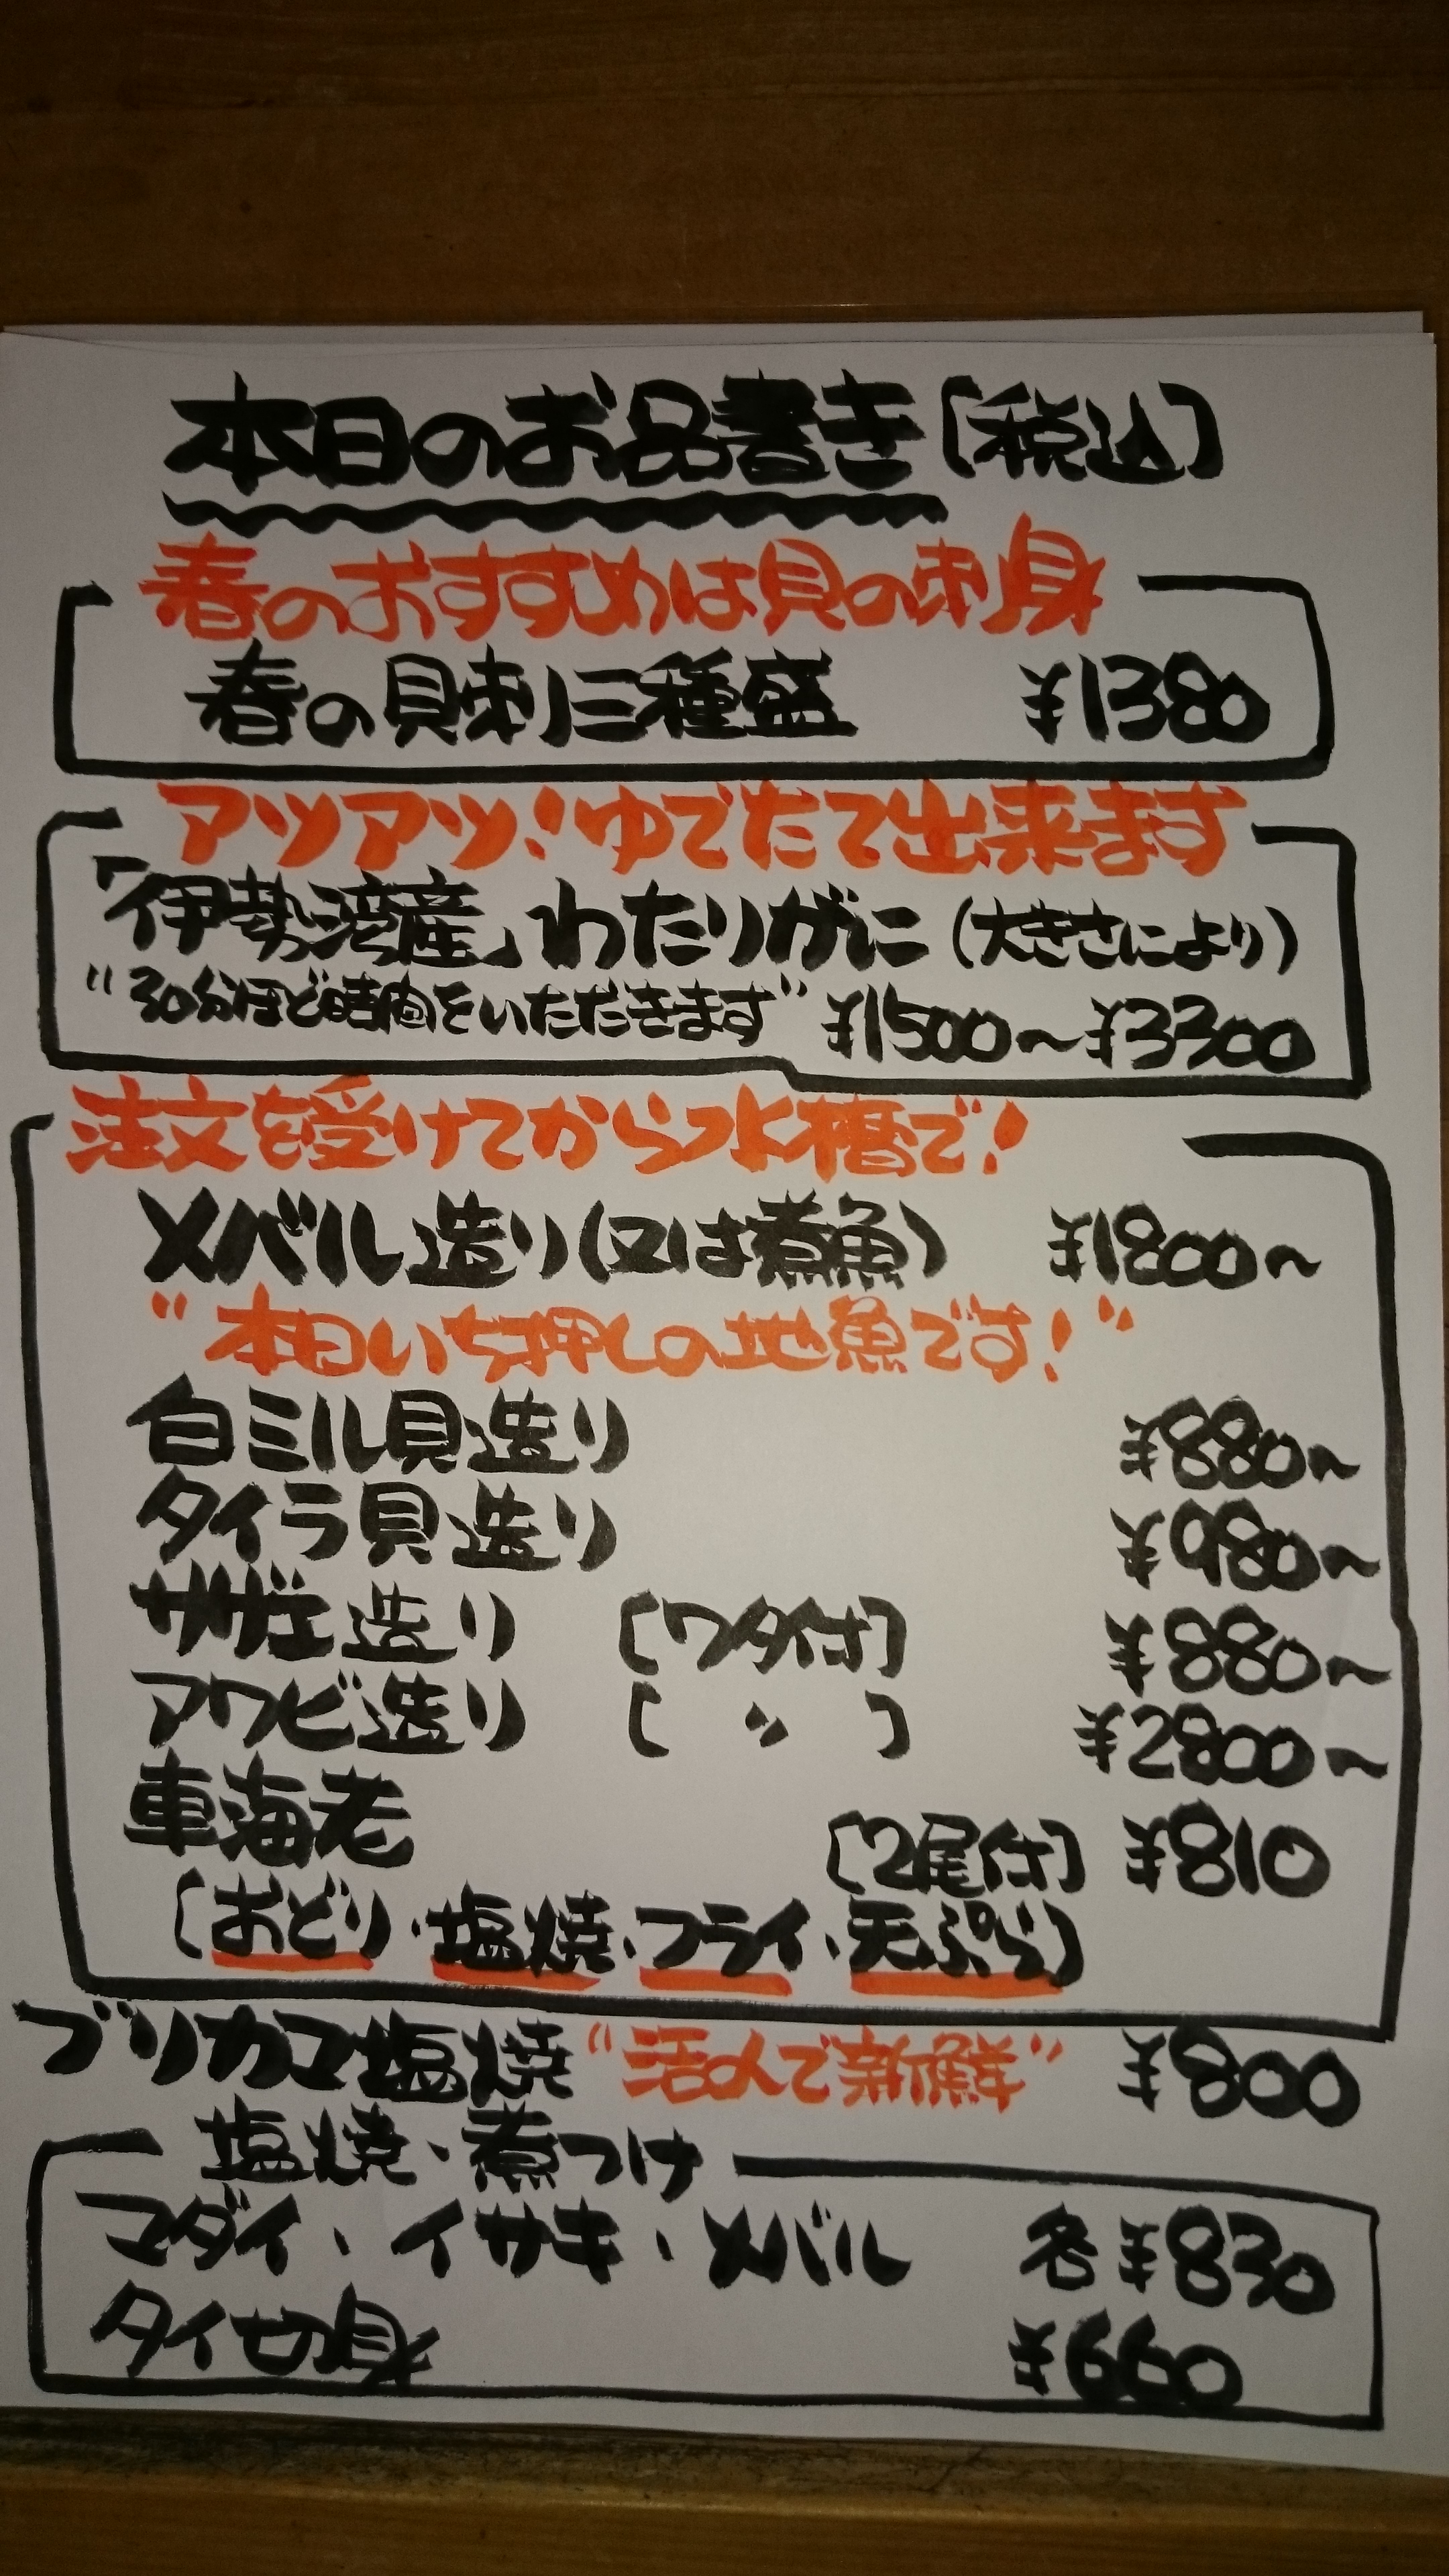 本日のお品書き〔税込〕
春のおすすめは貝の刺身
春の貝刺三種盛 ¥1380
アツアツ!ゆでたて出来ます
「伊勢湾産」わたりがに(大きさにより)
"30分ほど時間をいただきます" ¥1500〜¥3300
注文を受けてから水槽で!
メバル造り(又は煮魚) ¥1800〜
"本日いち押しの地魚です!"
白ミル貝造り ¥880〜
タイラ貝造り ¥980〜
サザエ造り 〔ワタ付〕 ¥880〜
アワビ造り 〔 〃 〕 ¥2800〜
車海老 〔2尾付〕 ¥810
〔おどり・塩焼・フライ・天ぷら〕
ブリカマ塩焼 "活〆で新鮮" ¥800
塩焼・煮つけ
マダイ・イサキ・メバル 各¥830
タイ切身 ¥660